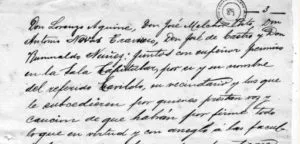 3
Don Lorenzo Aguirre, Don José Melchor Don
Antonio Navas Don José de Castro y Don
Nuñez: juntos con superior permiso
en la Sala Capitular, por si y en nombre
del referido Cavildo, su secundario y los que
le subcedieren por quienes prestan voz y
caucion de que habrán por firme todo
lo que en virtud y con arreglo a las facul-